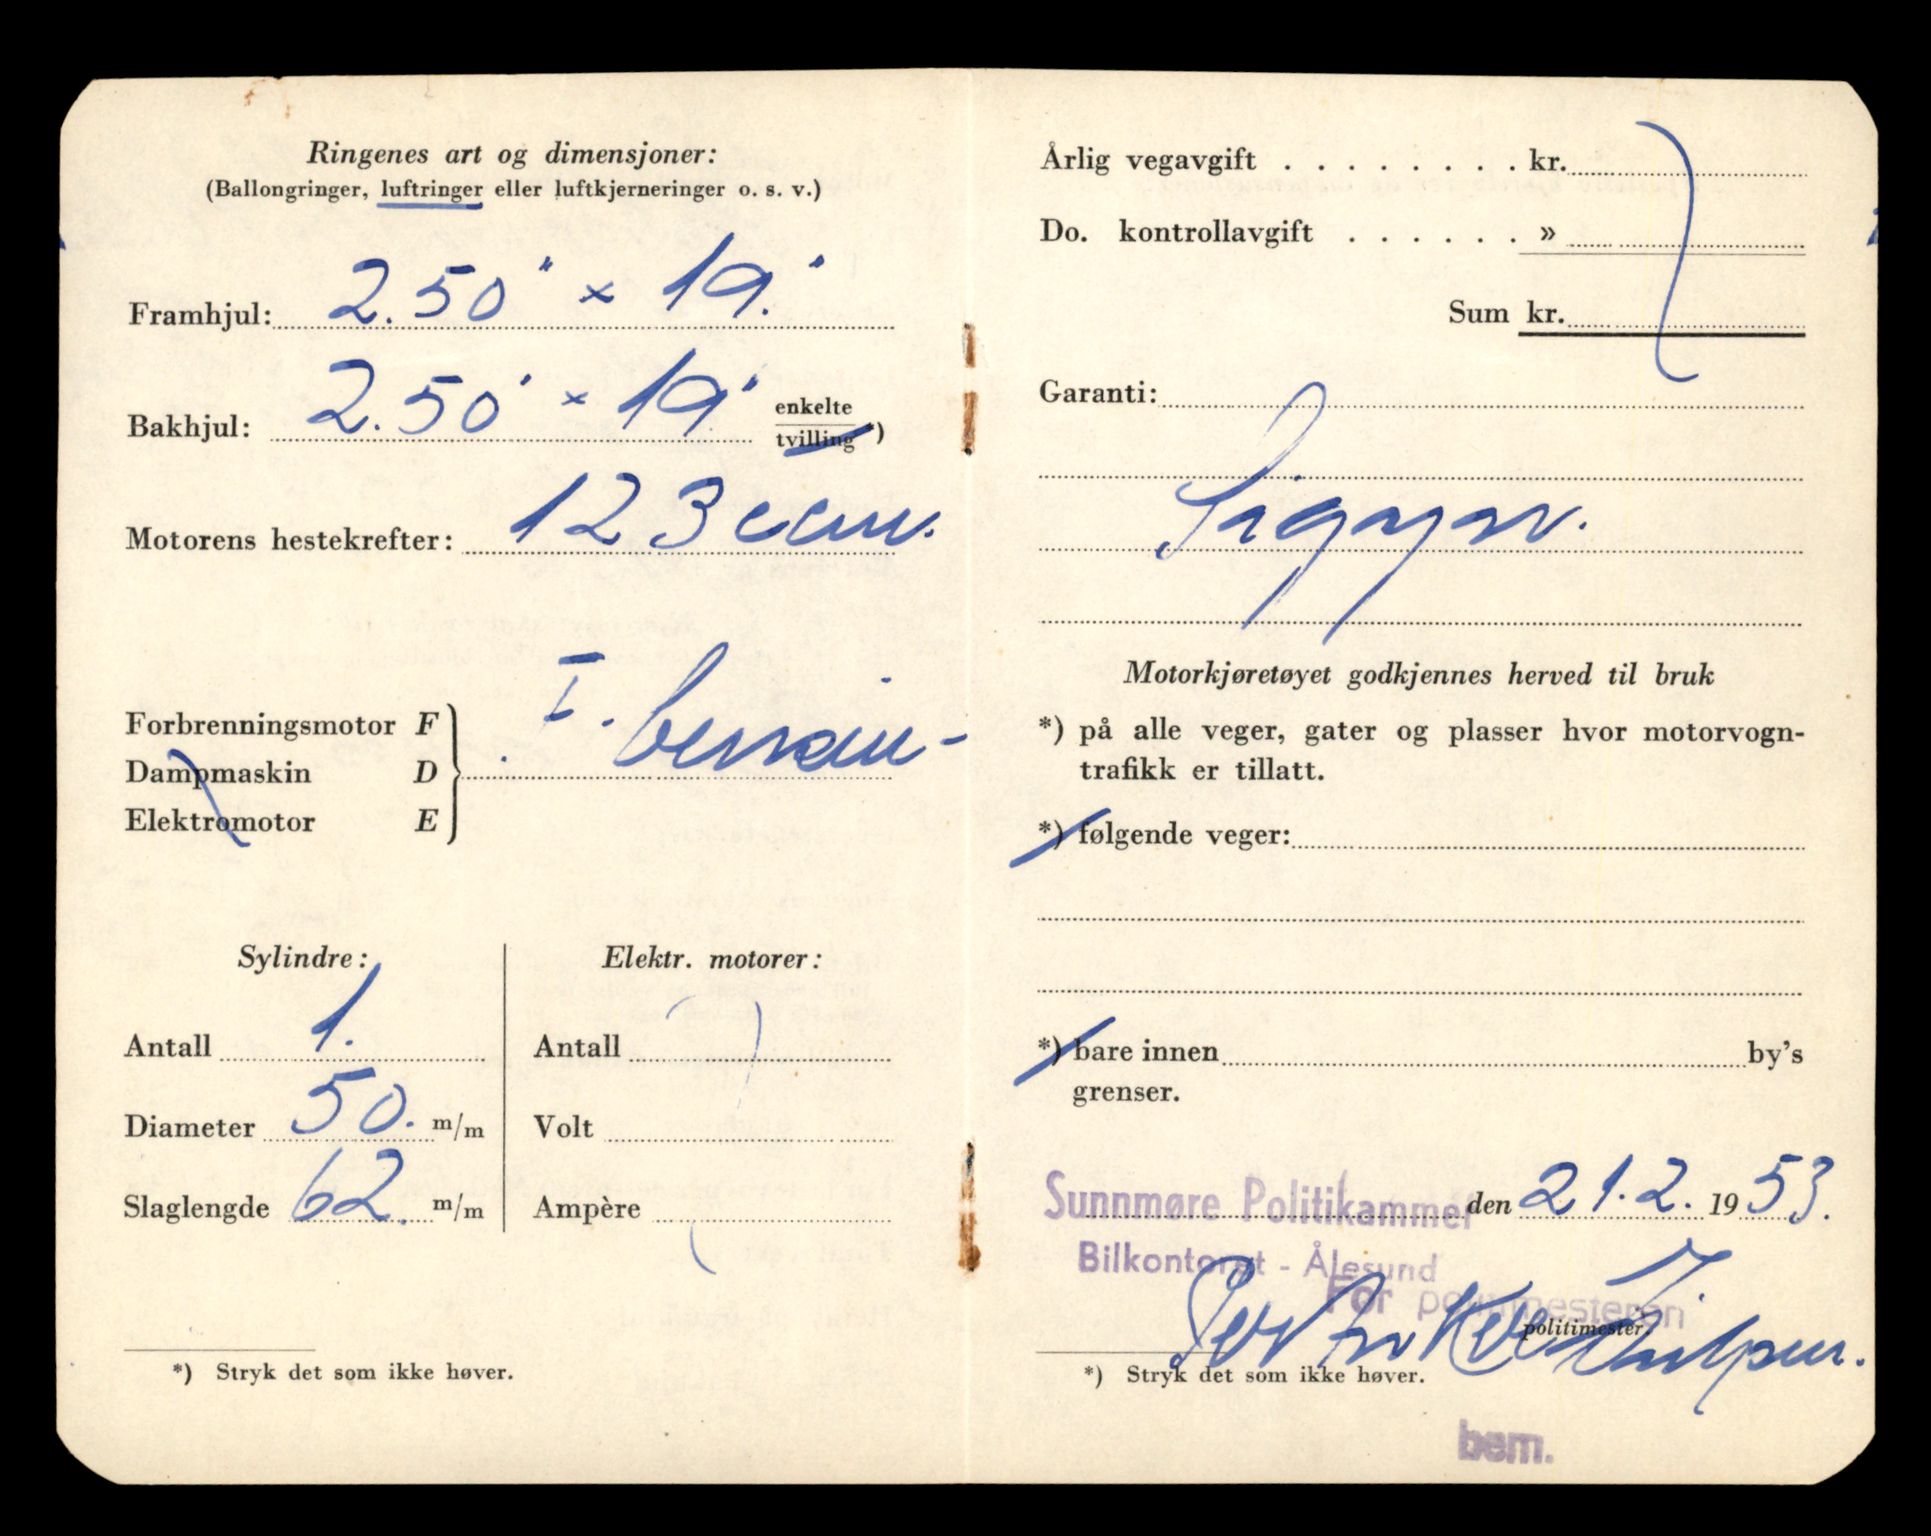 Ringenes art og dimensjoner:
(Ballongringer, luftringer eller luftkjerneringer o. s. v.)
Framhjul: 2.50" × 19"
Bakhjul: 2.50" × 19" enkelte
tvilling *)
Motorens hestekrefter: 123 ccm.
Forbrenningsmotor F
Dampmaskin D
Elektromotor E
bensin
Sylindre:
Antall 1.
Diameter 50. m/m
Slaglengde 62. m/m
Elektr. motorer:
Antall
Volt
Ampère
*) Stryk det som ikke høver.
Årlig vegavgift . . . . . . . . kr.
Do. kontrollavgift . . . . . . »
Sum kr.
Garanti:
*) Motorkjøretøyet godkjennes herved til bruk
*) på alle veger, gater og plasser hvor motorvogn-
trafikk er tillatt.
*) følgende veger:
*) bare innen by's
grenser.
Sunnmøre Politikammer den 21.2. 1953.
Bilkontoret - Ålesund
For politimesteren
politimester.
*) Stryk det som ikke høver.
bem.